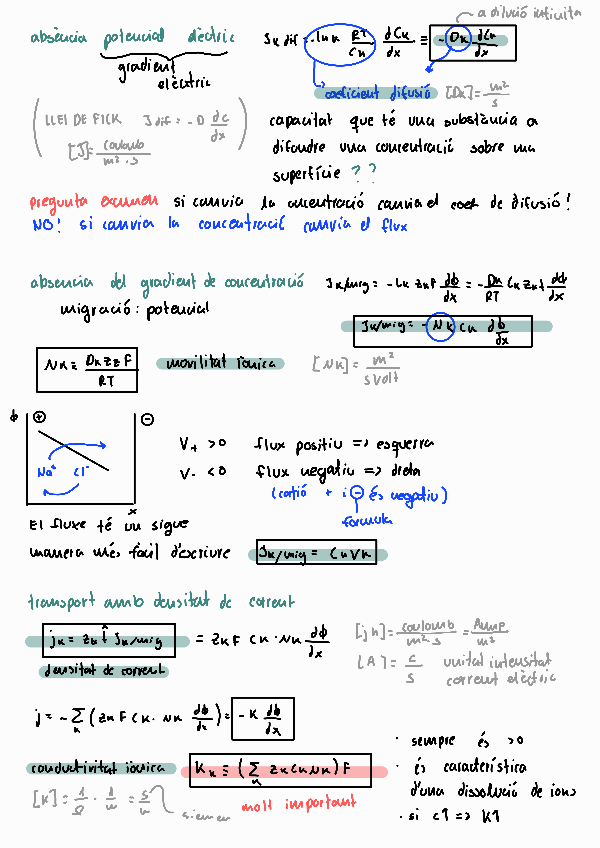 a dilució infinita
absència potencial elèctric
gradient
elèctric
Jk dif = - Lkk RT/Ck dCk/dx ≡ - Dk dCk/dx
coeficient difusió [Dk] = m²/s
LLEI DE FICK Jdif = - D dc/dx
[J] = coulomb/m²·s
capacitat que té una substància a
difondre una concentració sobre una
superfície ??
pregunta examen si canvia la concentració canvia el coef de difusió!
NO! si canvia la concentració canvia el flux
absència del gradient de concentració
migració: potencial
Jk/mig = - Lk zk F dϕ/dx = - Dk/RT Ck zk f dϕ/dx
Jk/mig = - Nk Ck dϕ/dx
Nk ≡ Dk zz F/RT
movilitat iònica
[Nk] = m²/s Volt
ϕ + -
Na⁺ Cl⁻
x
V+ >0 flux positiu => esquerra
V- <0 flux negatiu => dreta
(catió + i - és negatiu)
formula
El fluxe té un signe
manera més fàcil d'escriure Jk/mig = Ck Vk
transport amb densitat de corrent
jk = zk f Jk/mig = zk F Ck · Nk dϕ/dx
densitat de corrent
[jk] = coulomb/m² s = Amp/m²
[A] = C/s unitat intensitat
corrent elèctric
j = - Σk (zk F Ck · Nk dϕ/dx) = - K dϕ/dx
conductivitat iònica Kk ≡ (Σk zk Ck Nk) F
[K] = 1/Ω · 1/m = S/m
siemens
molt important
· sempre és >0
· és característica
d'una dissolució de ions
· si c↑ => K↑